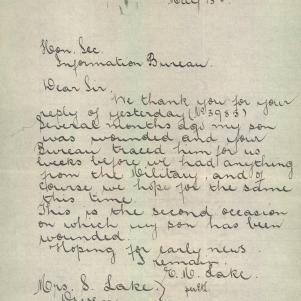 May 13
Hon. Sec.
Information Bureau.
Dear Sir.
We thank you for your
reply of yesterday (No 3983)
Several months ago my son
was wounded and your
Bureau traced him for us
weeks before we had anything
from the Military, and of
course we hope for the same
this time.
This is the second occasion
on which my son has been
wounded.
Hoping for early news
I remain
E. M. Lake.
Mrs. S. Lake